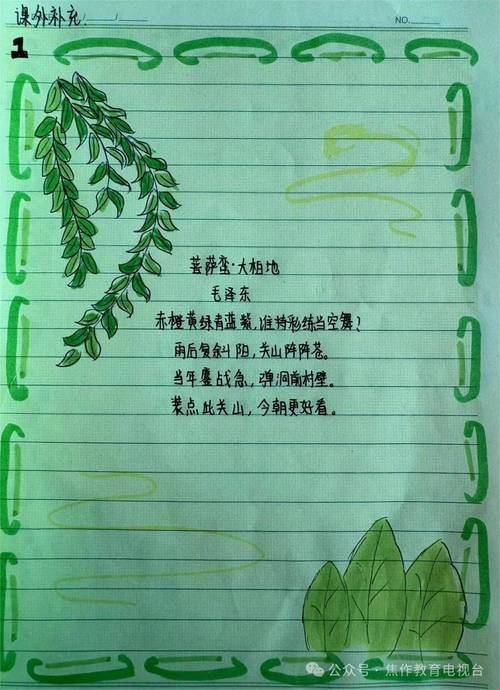 课外补充
NO.
1
菩萨蛮·大柏地
毛泽东
赤橙黄绿青蓝紫,谁持彩练当空舞?
雨后复斜阳,关山阵阵苍。
当年鏖战急,弹洞前村壁。
装点此关山,今朝更好看。
公众号·焦作教育电视台